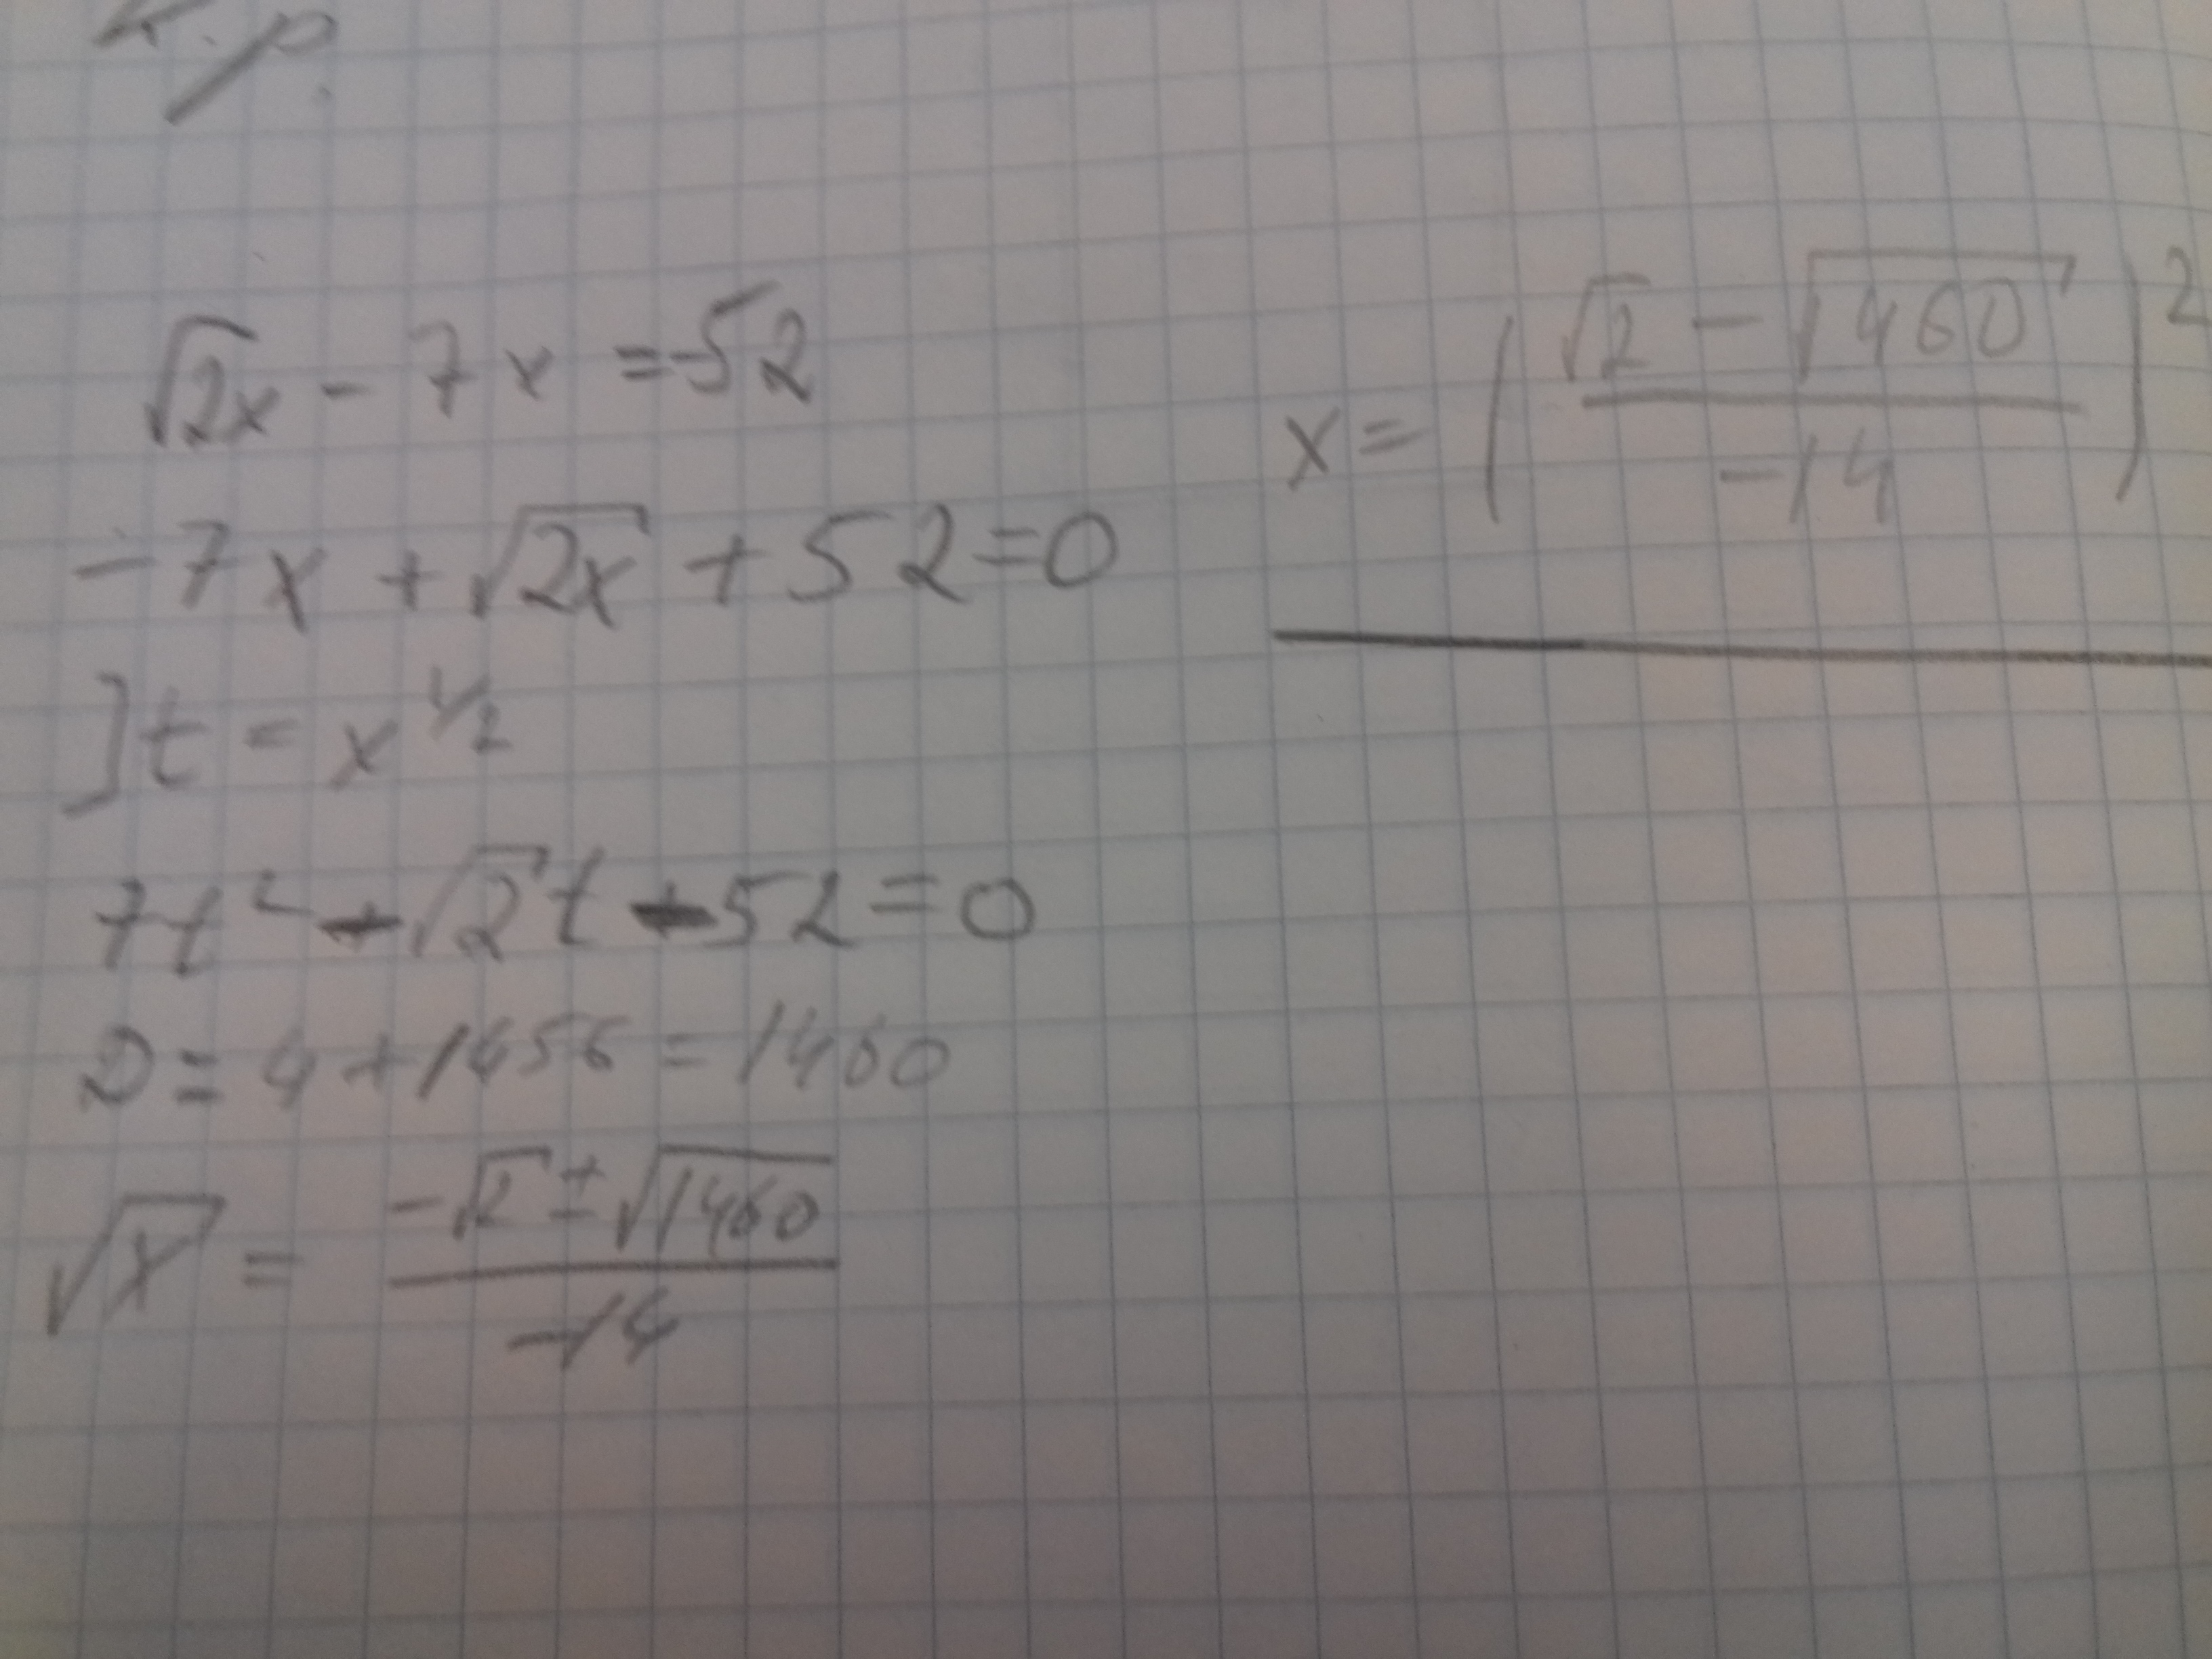 к.р.
√2x - 7x = -52
-7x + √2x + 52 = 0
] t = x^1/2
7t² - √2 t - 52 = 0
D = 4 + 1456 = 1460
√x = (-√2 ± √1460) / -14
x = ((√2 - √1460) / -14)²